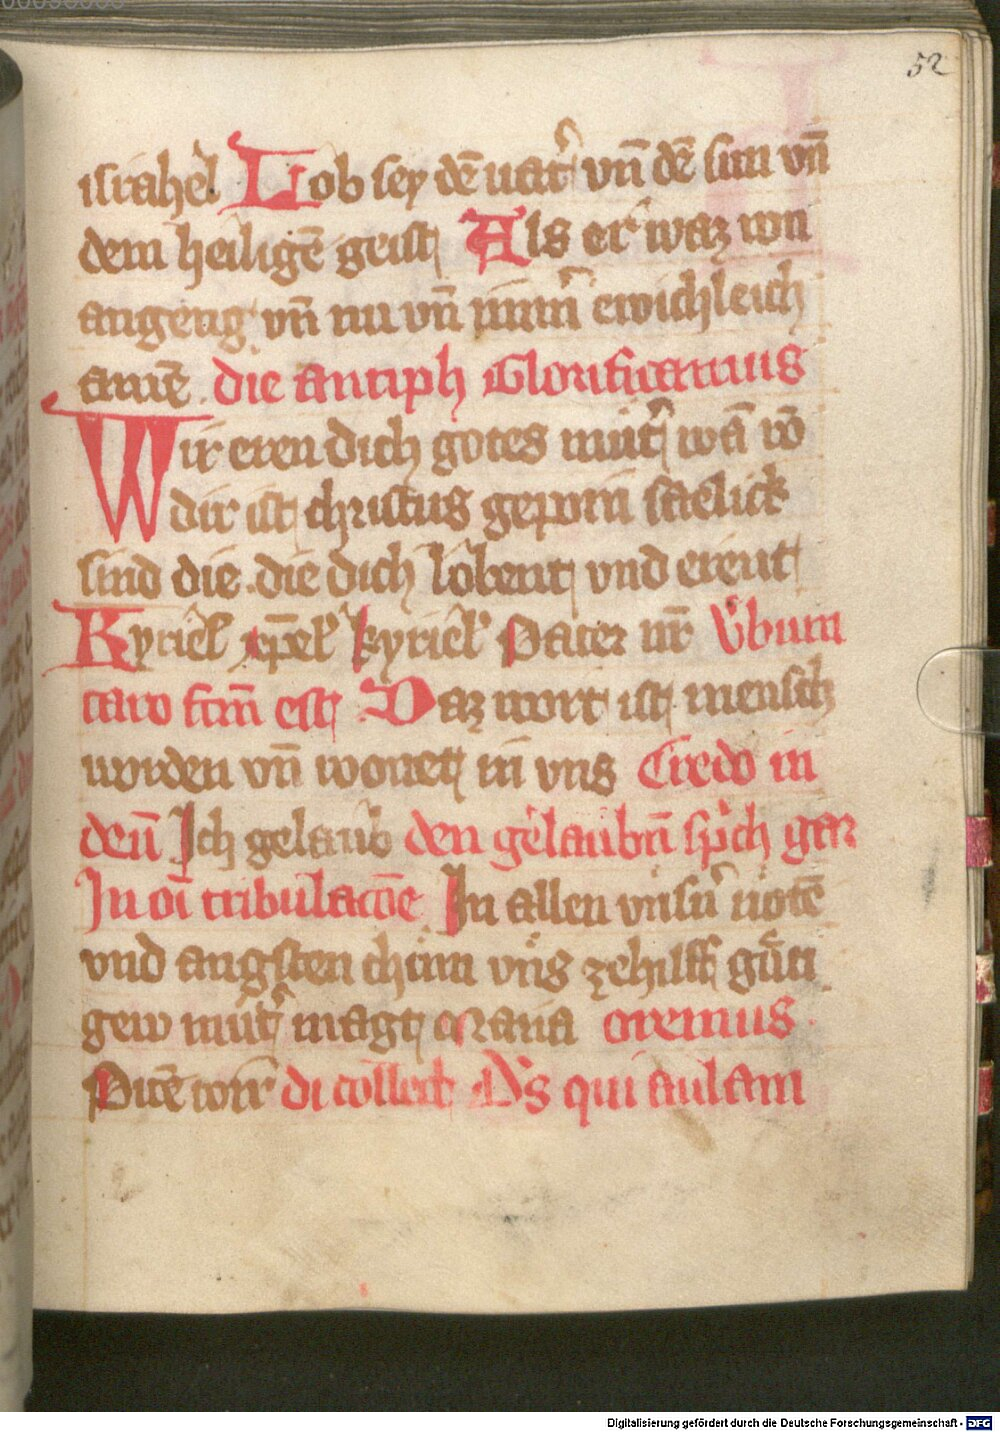 52
israhel Lob sey dē uat͛ vn̄ dē sun vn̄
dem heiligē geist Als er waz von
angeng vn̄ nu vn̄ nim̄ ewichleich
amē . die antiph Glorificamus
Wir eren dich gotes mut͛ wā vō
dir ist christus geporn saelick
sind die die dich lobent vnd erent
Kyriel xp̄el kyriel Pater nr̄ Vbum
caro fcm̄ est Daz wort ist mensch
worden vn̄ wonet in vns Credo in
deū Ich gelaub den gelaubn̄ sp̄ch gar
In oī tribulacōe In allen vnsn͛ nötē
vnd angsten chum vns zehilff güti
gew mut͛ magt Maria oremus
Pitē wir di collect Ds̄ qui aulam
Digitalisierung gefördert durch die Deutsche Forschungsgemeinschaft - DFG